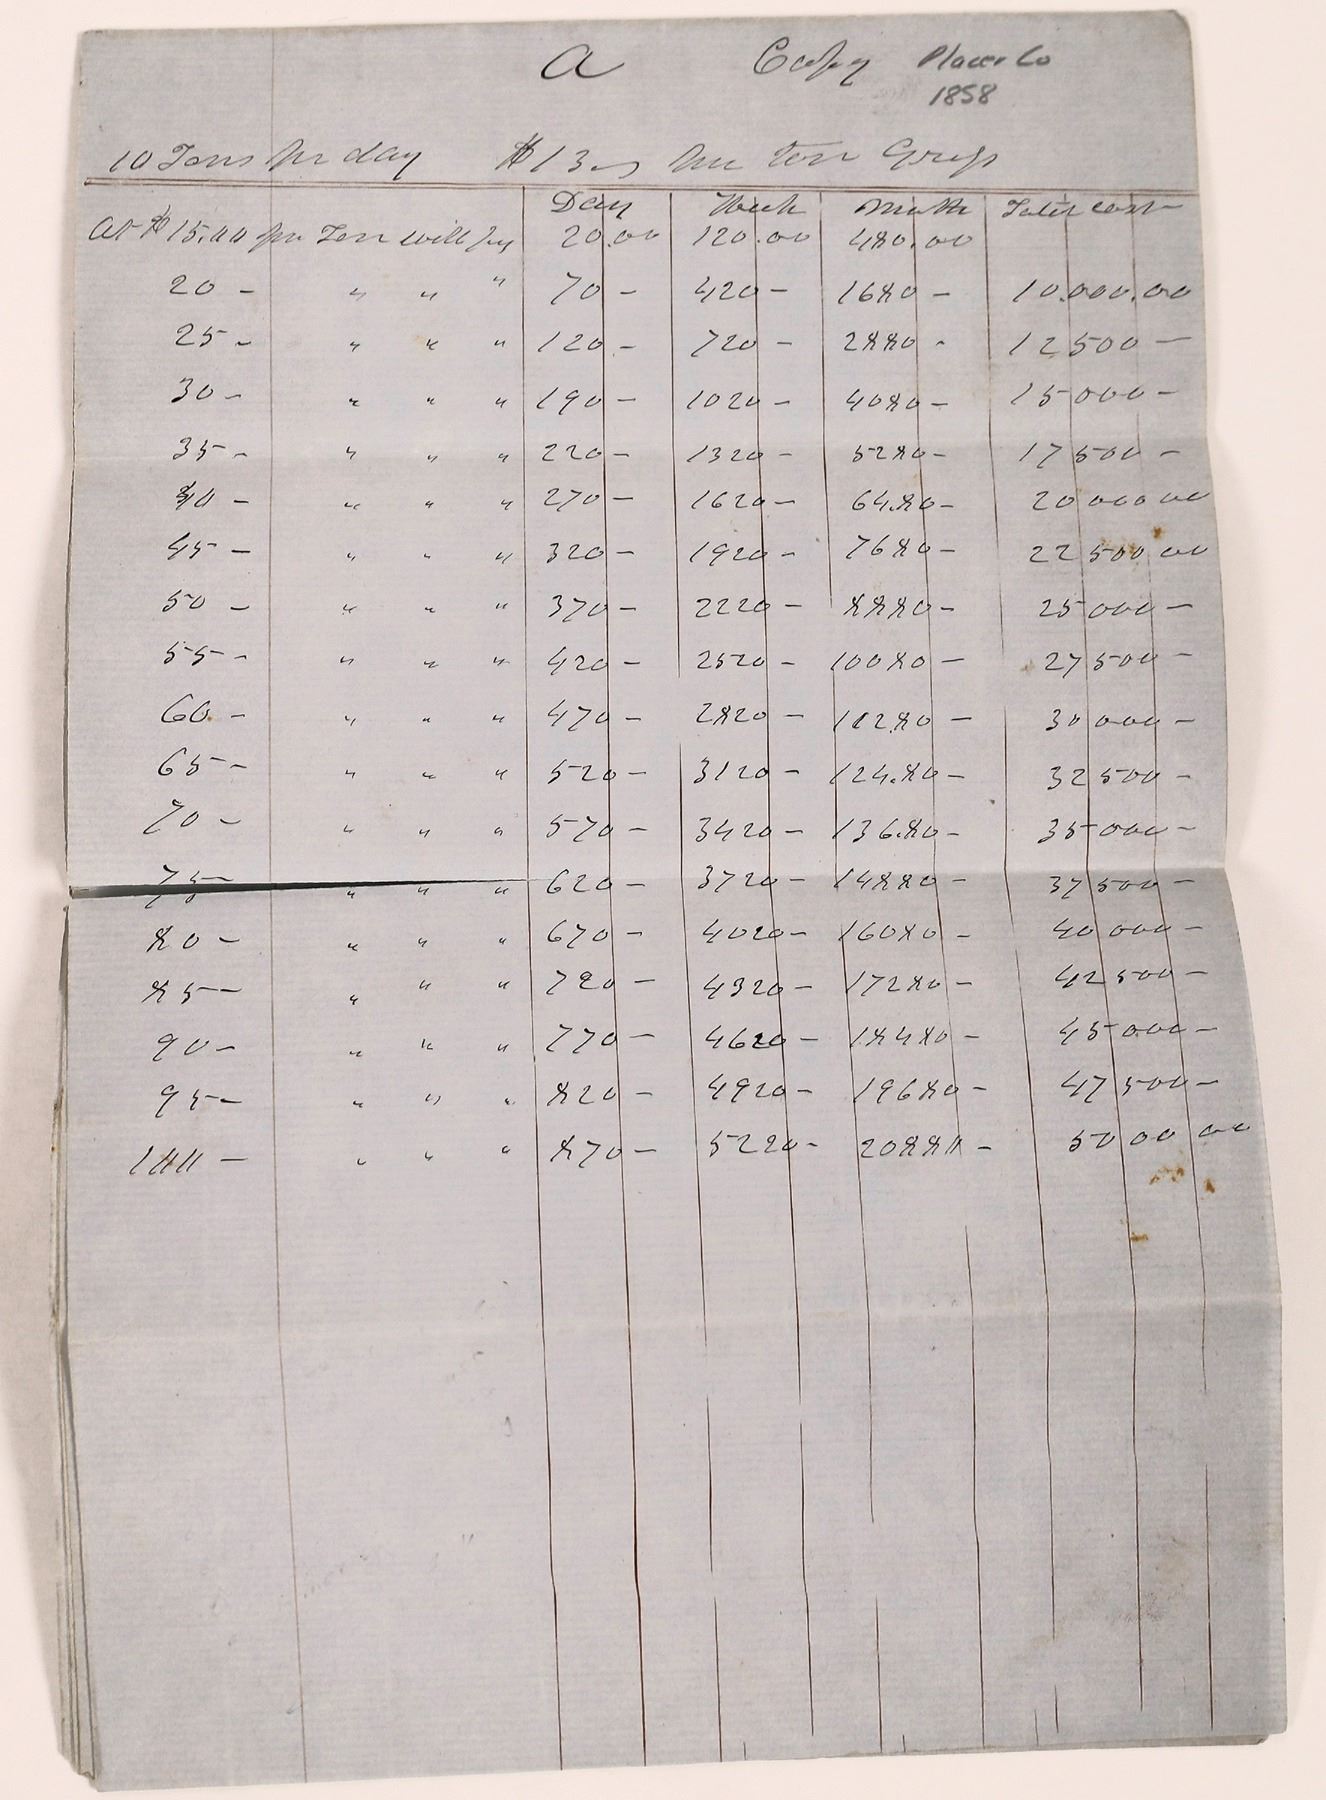 a Copy Placer Co
1858
10 Tons pr day $13 per ton
Day Week Month Total cost
At $15.00 per Ton will pay 20.00 120.00 480.00
20 - " " " 70 - 420 - 1680 - 10.000.00
25 - " " " 120 - 720 - 2880 - 12500 -
30 - " " " 190 - 1020 - 4080 - 15000 -
35 - " " " 220 - 1320 - 5280 - 17500 -
40 - " " " 270 - 1620 - 6480 - 20000 00
45 - " " " 320 - 1920 - 7680 - 22500 00
50 - " " " 370 - 2220 - 8880 - 25000 -
55 - " " " 420 - 2520 - 10080 - 27500 -
60 - " " " 470 - 2820 - 11280 - 30000 -
65 - " " " 520 - 3120 - 12480 - 32500 -
70 - " " " 570 - 3420 - 13680 - 35000 -
75 - " " " 620 - 3720 - 14880 - 37500 -
80 - " " " 670 - 4020 - 16080 - 40000 -
85 - " " " 720 - 4320 - 17280 - 42500 -
90 - " " " 770 - 4620 - 18480 - 45000 -
95 - " " " 820 - 4920 - 19680 - 47500 -
100 - " " " 870 - 5220 - 20880 - 5000 00